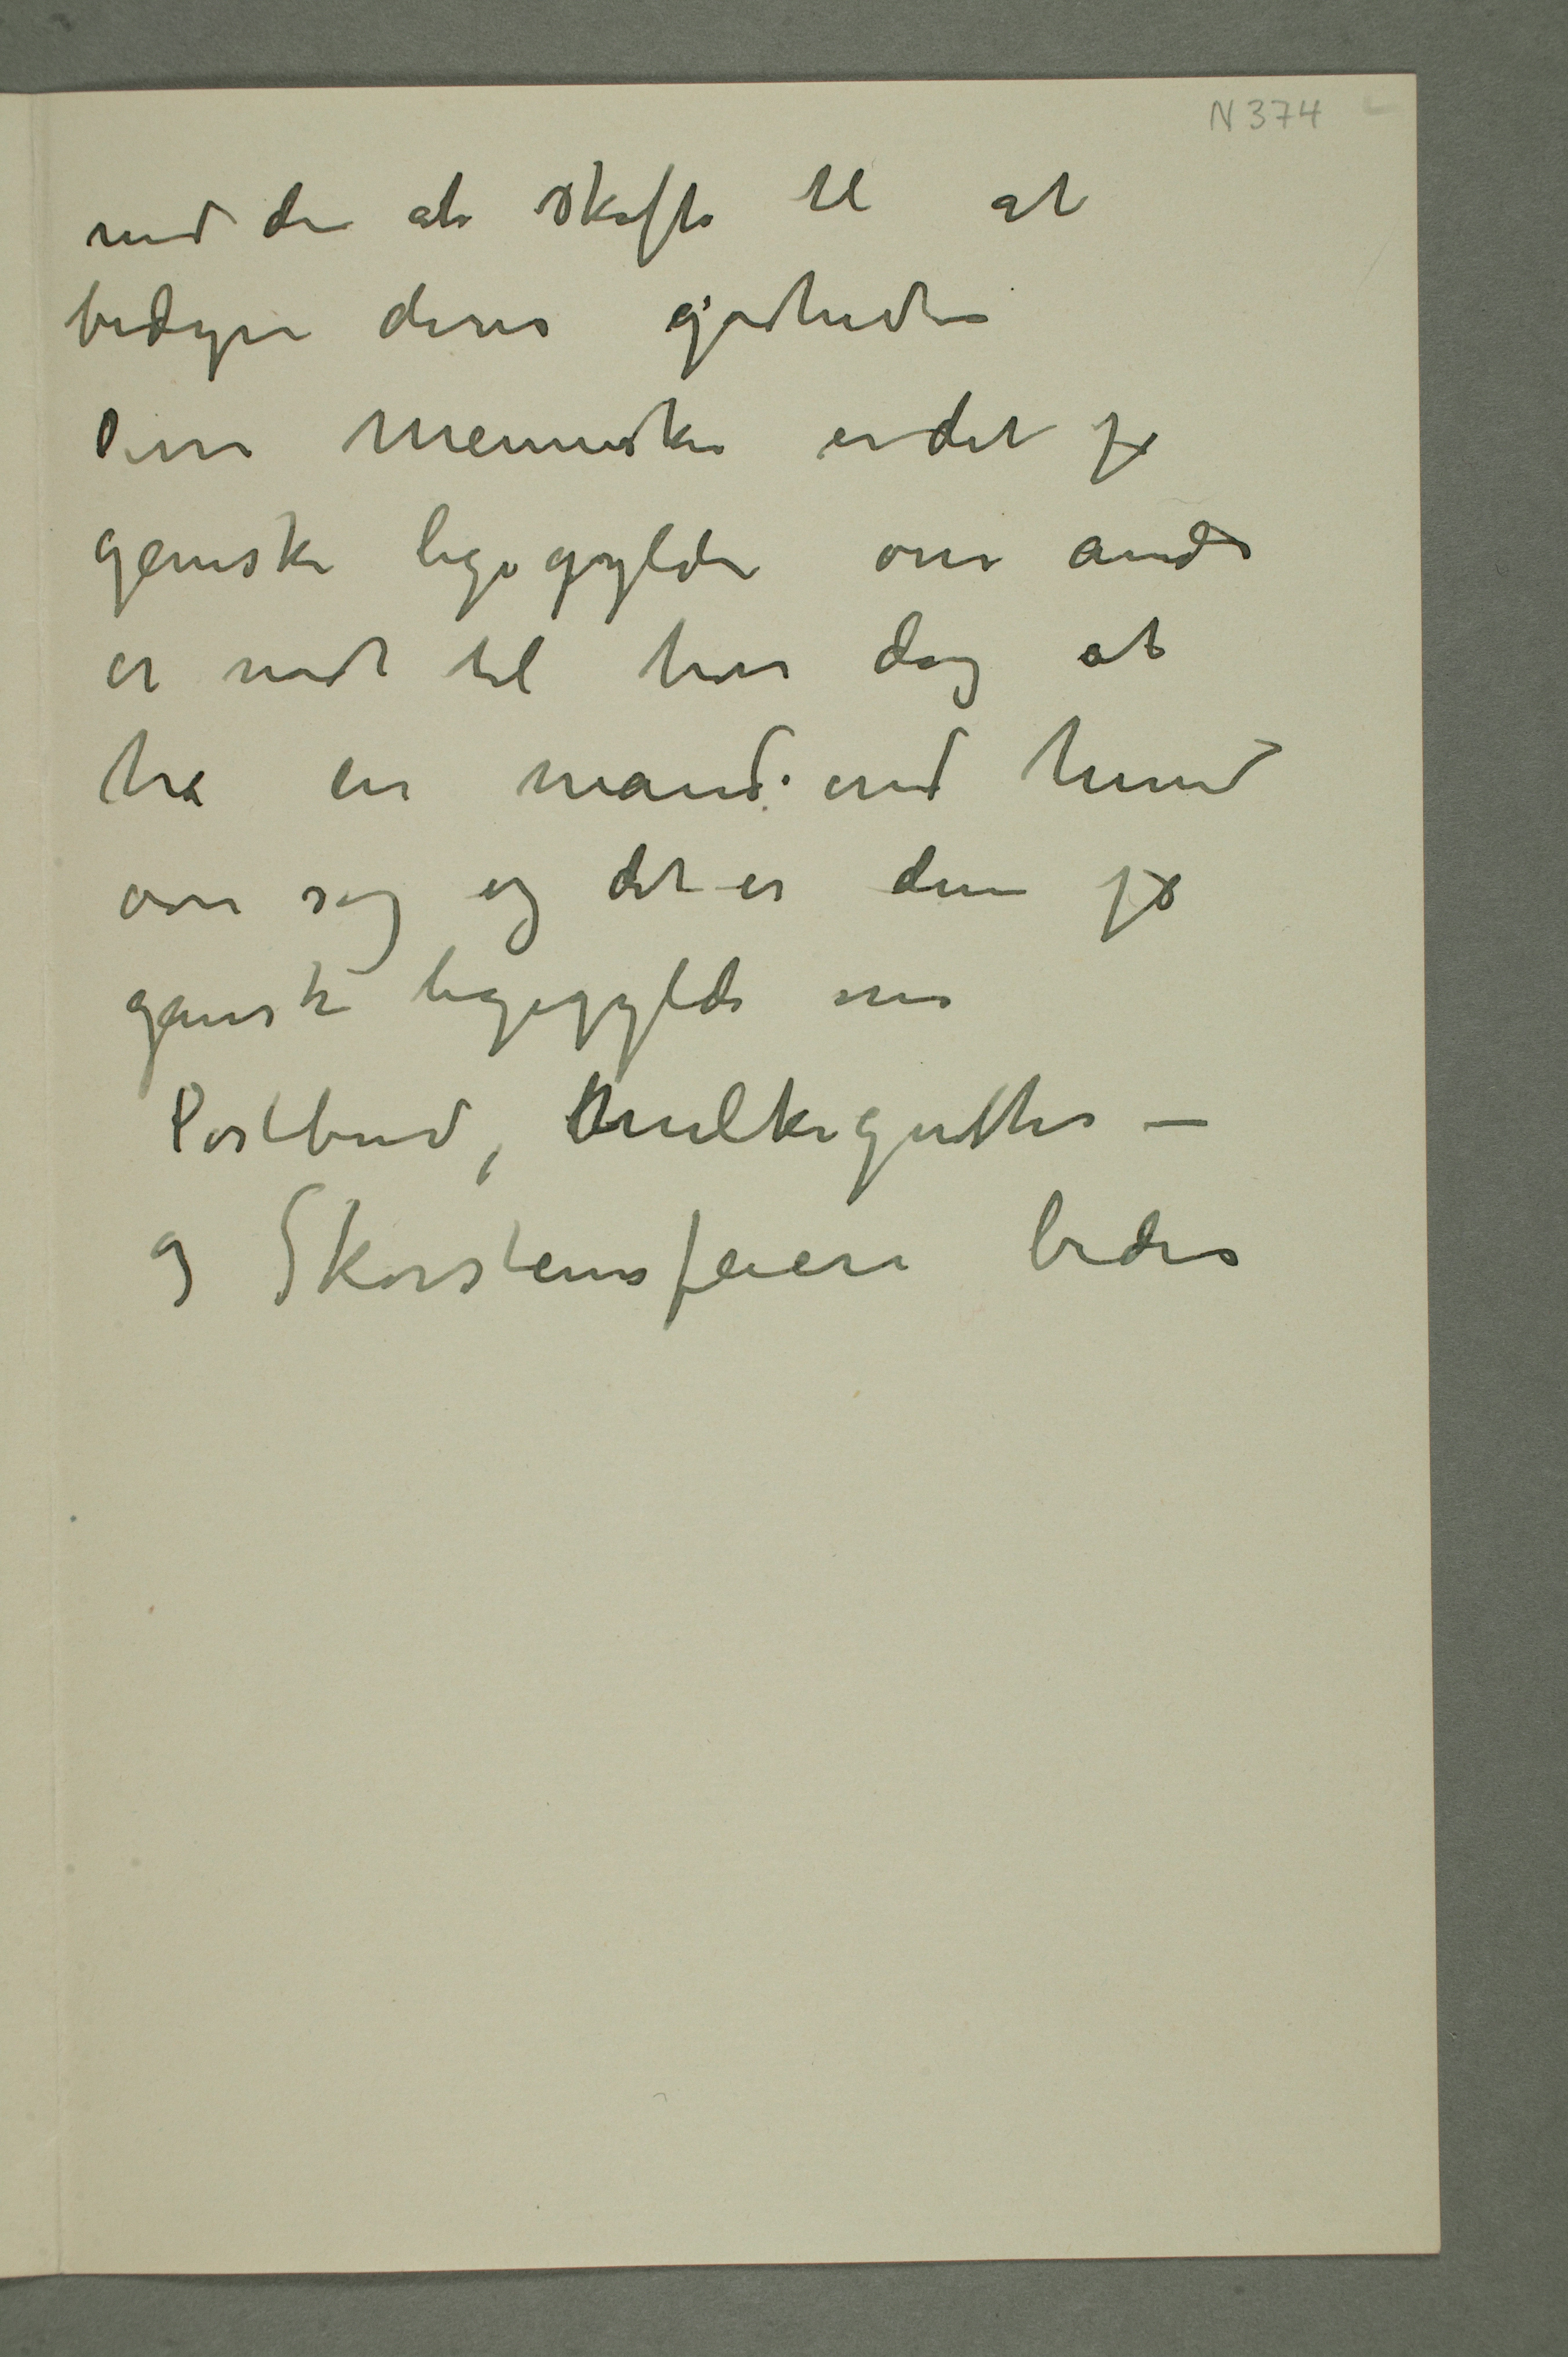 N 374
med den at skafte til at
bedyre deres godheder
Disse Mennesker er det jo
ganske ligegyldi om andre
er nødt til hver dag at
ha en mandvond hund
over sig og det er dem jo
ganske ligegyldi om
Postbud, Mælkegutter –
og Skorstensfeiere bides